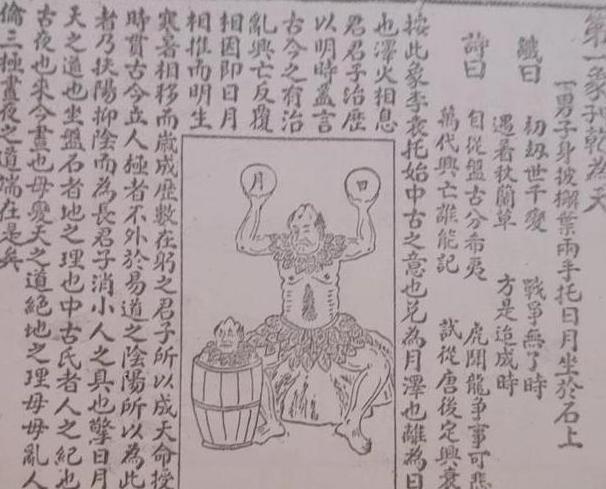 第一象 乾為天
一男子身披槲葉兩手托日月坐於石上
讖曰 初劫世千變 戰爭無了時
遇著狄蘭草 方是造成時
詩曰 自從盤古分布夷 虎鬭龍爭事可悲
萬代興亡誰能記 試從唐後定興衰
按此象李袁托始中古之意也兌為月澤也離為日
也澤火相息
君君子治歷
以明時蓋言
古今之有治
亂興亡反覆
相因即日月
相推而明生
寒暑相移而歲成歷數在躬之君子所以成天命授
時貫古今立人極者不外於易道之陰陽所以為此
者乃扶陽抑陰而為長君子消小人之具也擎日月
天之道也坐盤石者地之理也中古氏者人之紀也
古夜也來今晝也毋變天之道絕地之理毋毋亂人
倫三極晝夜之道端在是矣
日
月